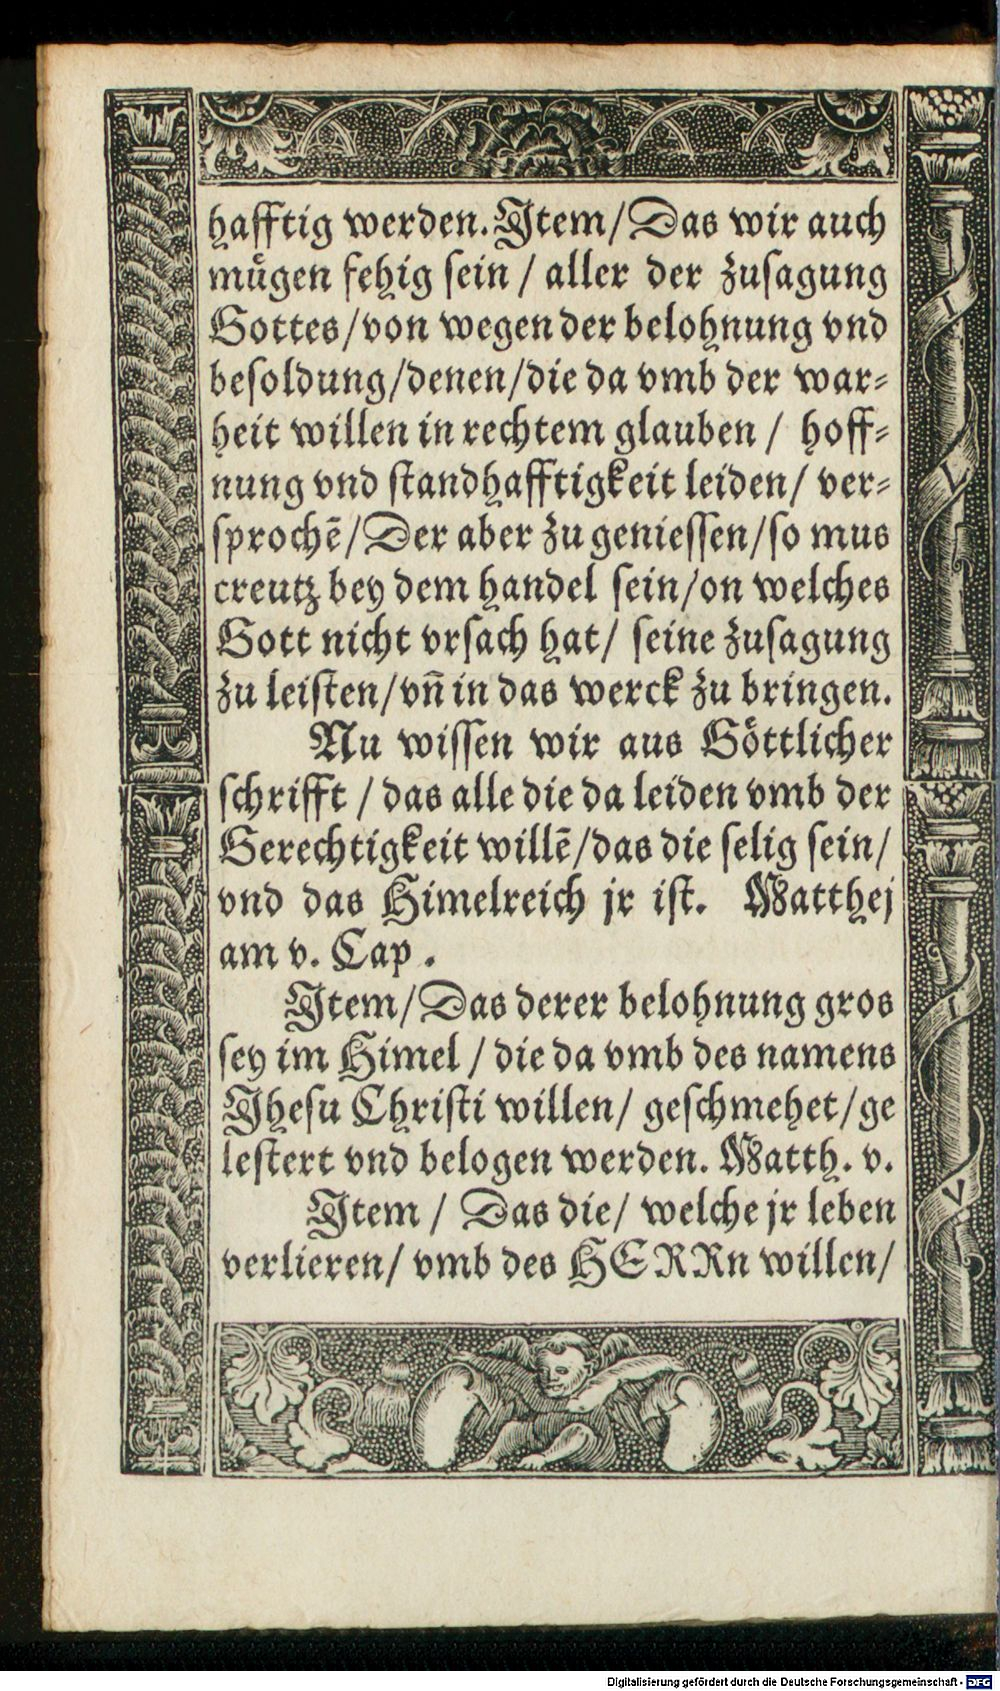 hafftig werden. Item/ Das wir auch
mügen fehig sein / aller der zusagung
Gottes/ von wegen der belohnung vnd
besoldung/denen/die da vmb der war⸗
heit willen in rechtem glauben / hoff⸗
nung vnd standhafftigkeit leiden/ ver⸗
sprochē/ Der aber zu geniessen/so mus
creutz bey dem handel sein/on welches
Gott nicht vrsach hat/ seine zusagung
zu leisten/ vn̄ in das werck zu bringen.
Nu wissen wir aus Göttlicher
schrifft / das alle die da leiden vmb der
Gerechtigkeit willē/das die selig sein/
vnd das Himelreich jr ist. Matthej
am v. Cap.
Item/ Das derer belohnung gros
sey im Himel / die da vmb des namens
Jhesu Christi willen/ geschmehet/ge
lestert vnd belogen werden. Matth. v.
Item / Das die/ welche jr leben
verlieren/ vmb des HERRn willen/
Digitalisierung gefördert durch die Deutsche Forschungsgemeinschaft - DFG